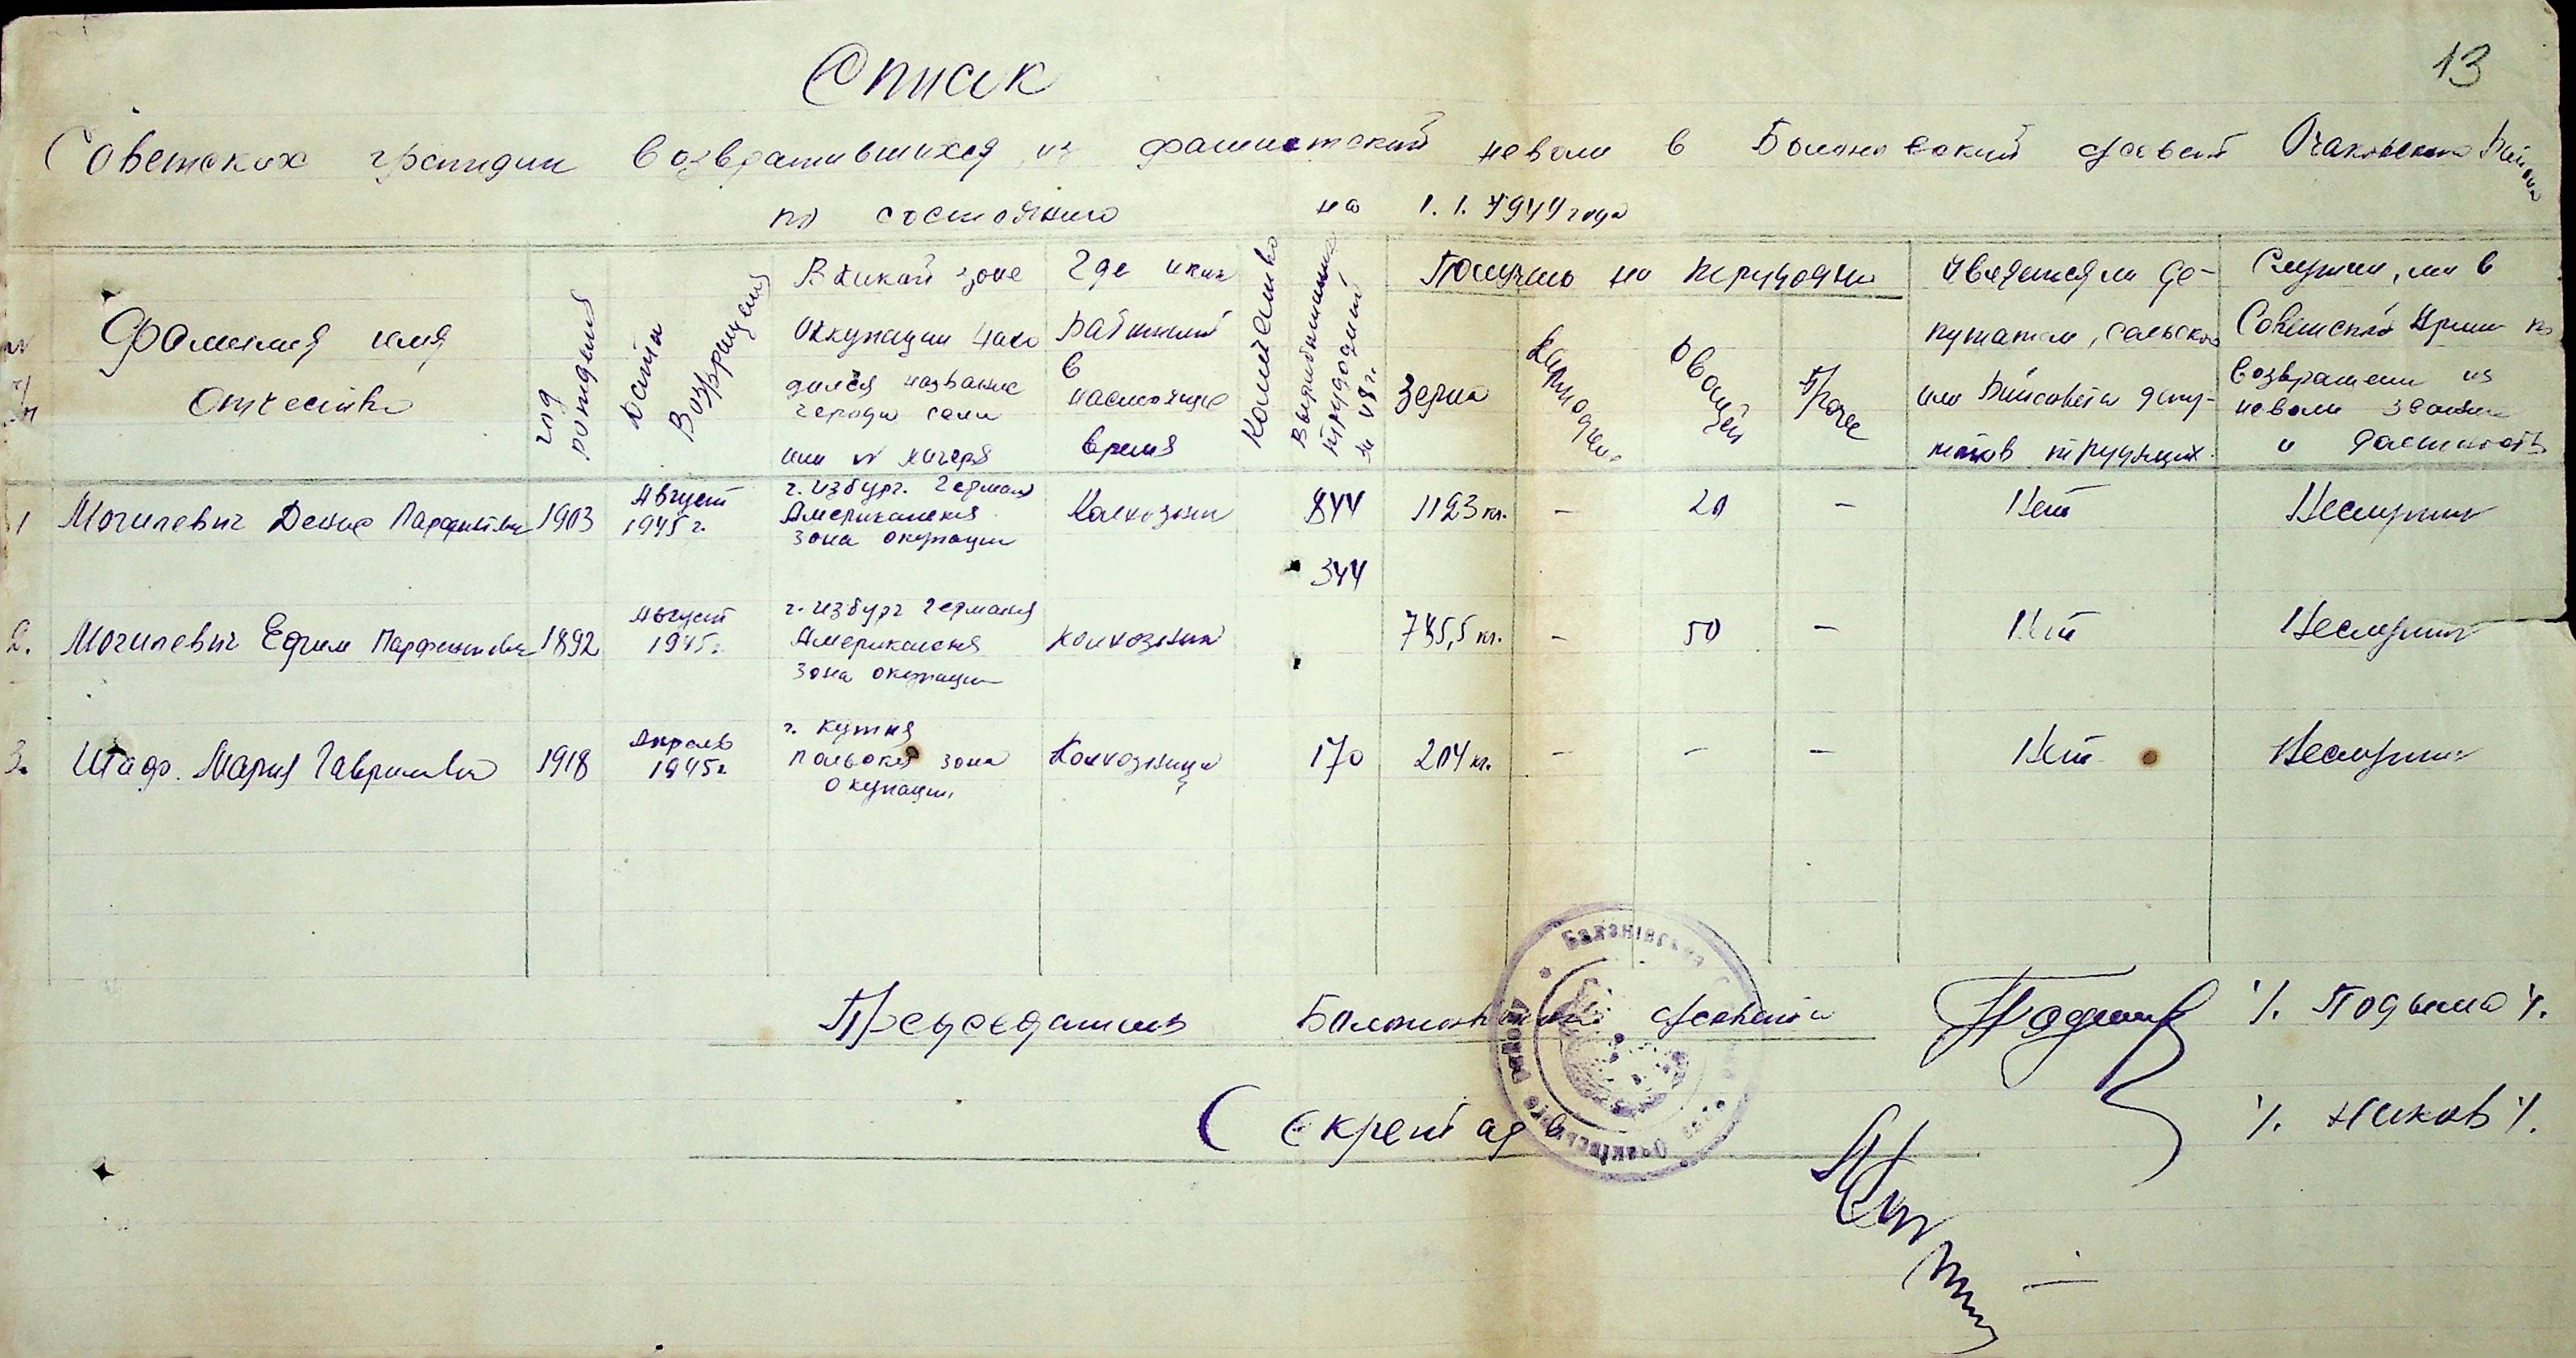 13
Список
Советских граждан возвратившихся из фашистской неволи в Болоновский с/совет Очаковского района
по состоянию на 1.1.1949 года
№ п/п
Фамилия имя отчество
год рождения
Дата возвращения
В какой зоне оккупации находился название города села или № лагеря
Где и кем работает в настоящее время
Количество выработанных трудодней за 48 г.
Получено на трудодни
Зерна
Картофеля
Овощей
Прочее
Является ли депутатом, сельского или Райсовета депутатов трудящих.
Служил, ли в Советской Армии по возвращении из неволи звание и должность
1 Могилевич Денис Парфентьевич 1903 Август 1945 г. г. Избург. Германия Американская зона окупации Колхозник 844 1123 кг. – 20 – Нет Неслужил
344
2. Могилевич Ефим Парфентьевич 1892 Август 1945 г. г. Избург Германия Американская зона окупации колхозник 785,5 кг. – 50 – Нет Неслужил
3. Штаф. Мария Гавриловна 1918 Апрель 1945 г. г. Кутня польская зона окупации Колхозница 170 204 кг. – – – Нет Неслужил
Председатель Болоновского с/совета /. Подыма /.
Секретарь /. Ников /.
Очаківського району